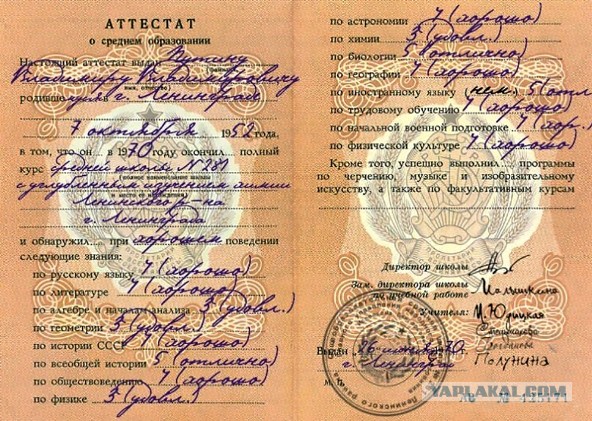 АТТЕСТАТ
о среднем образовании
Настоящий аттестат выдан Путину
Владимиру Владимировичу
родившемуся в г. Ленинград
7 октября 1952 года,
в том, что он в 1970 году окончил полный
курс средней школы № 281
с углубленным изучением химии
Ленинского р-на
г. Ленинграда
и обнаружил при хорошем поведении
следующие знания:
по русскому языку 4 (хорошо)
по литературе 4 (хорошо)
по алгебре и началам анализа 3 (удовл.)
по геометрии 3 (удовл.)
по истории СССР 4 (хорошо)
по всеобщей истории 5 (отлично)
по обществоведению 4 (хорошо)
по физике 3 (удовл.)
по астрономии 4 (хорошо)
по химии 3 (удовл.)
по биологии 5 (отлично)
по географии 4 (хорошо)
по иностранному языку (нем.) 5 (отл
по трудовому обучению 4 (хорошо)
по начальной военной подготовке 4 (хор.)
по физической культуре 4 (хорошо)
Кроме того, успешно выполнил программы
по черчению, музыке и изобразительному
искусству, а также по факультативным курсам
Директор школы
Зам. директора школы
по учебной работе
Учителя:
Полунина
Выдан 26 1970 г.
г. Ленинград
М. П.
YAPLAKAL.COM